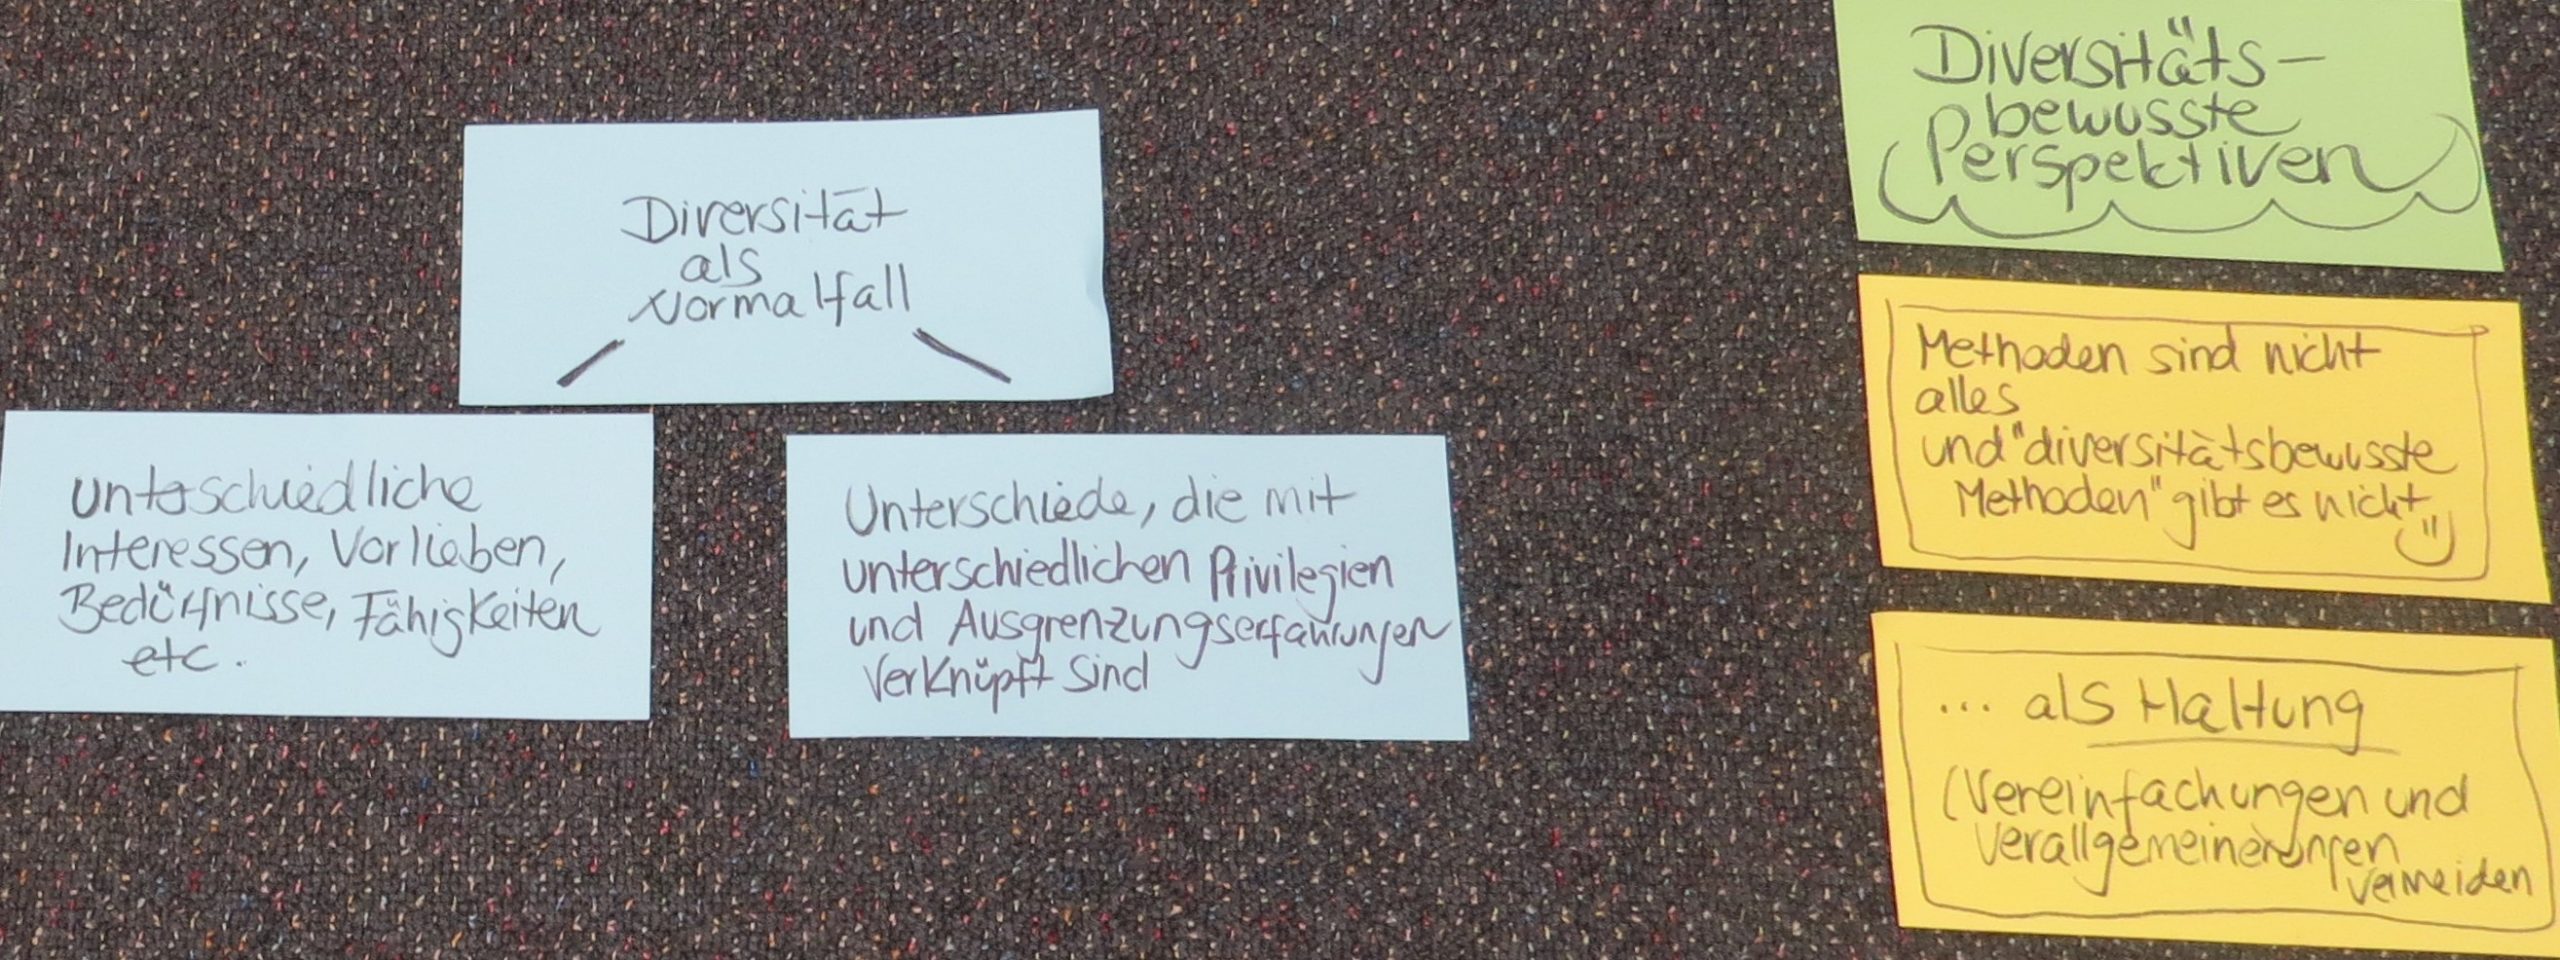 Diversität
als
Normalfall
Unterschiedliche
Interessen, Vorlieben,
Bedürfnisse, Fähigkeiten
etc.
Unterschiede, die mit
unterschiedlichen Privilegien
und Ausgrenzungserfahrungen
verknüpft sind
Diversitäts-
bewusste
Perspektiven
Methoden sind nicht
alles
und "diversitätsbewusste
Methoden" gibt es nicht
... als Haltung
(Vereinfachungen und
Verallgemeinerungen
vermeiden